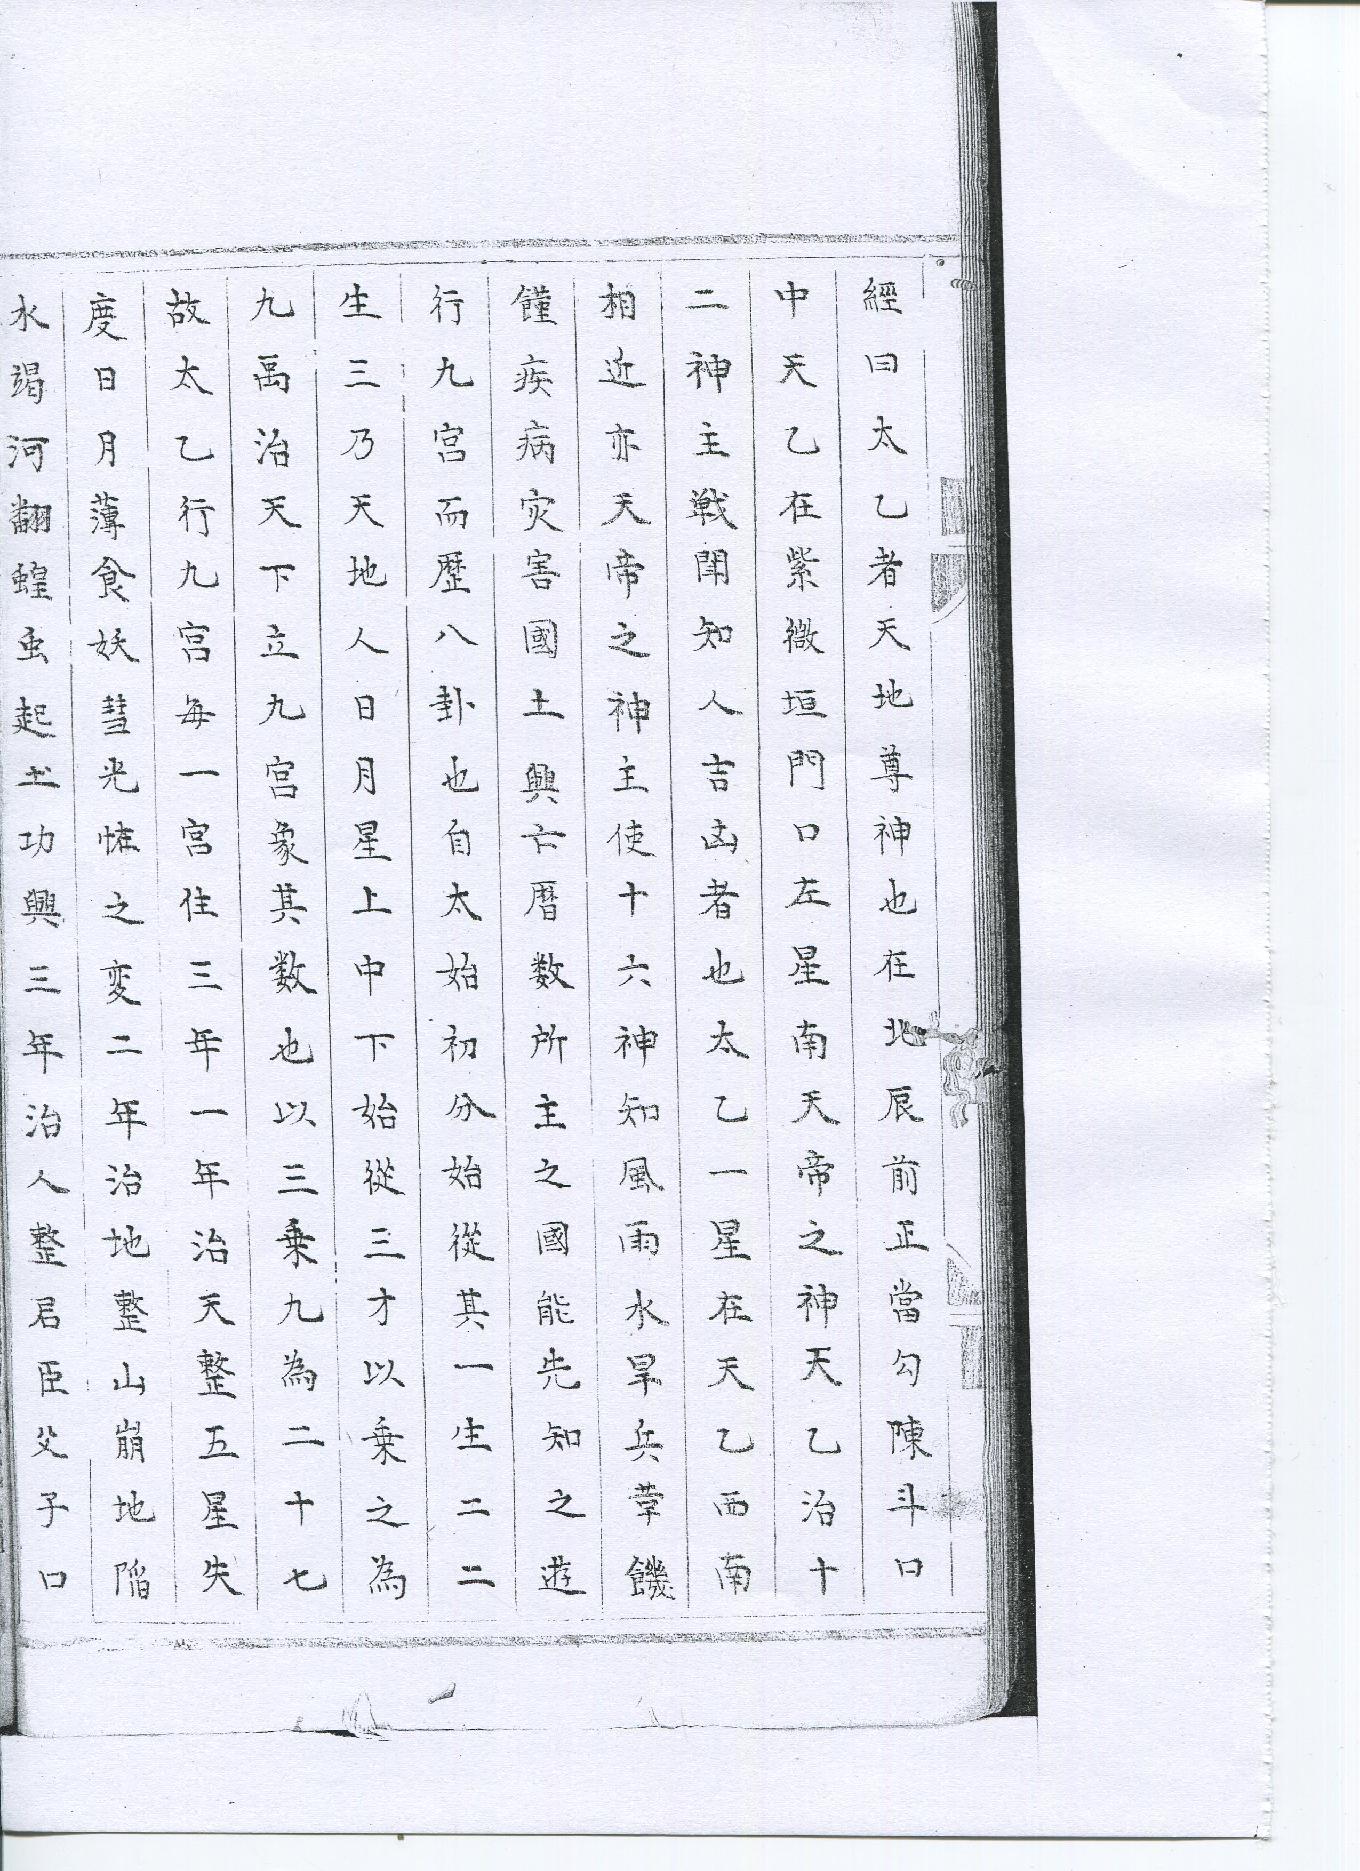 經曰太乙者天地尊神也在北辰前正當勾陳斗口
中天乙在紫微垣門口左星南天帝之神天乙治十
二神主戦闘知人吉凶者也太乙一星在天乙西南
相近亦天帝之神主使十六神知風雨水旱兵革饑
饉疾病灾害國土興亡曆数所主之國能先知之遊
行九宮而歷八卦也自太始初分始從其一生二二
生三乃天地人日月星上中下始從三才以乗之為
九禹治天下立九宮象其数也以三乗九為二十七
故太乙行九宮每一宮住三年一年治天整五星失
度日月薄食妖彗光怪之变二年治地整山崩地陷
水竭河翻蝗虫起土功興三年治人整君臣父子口